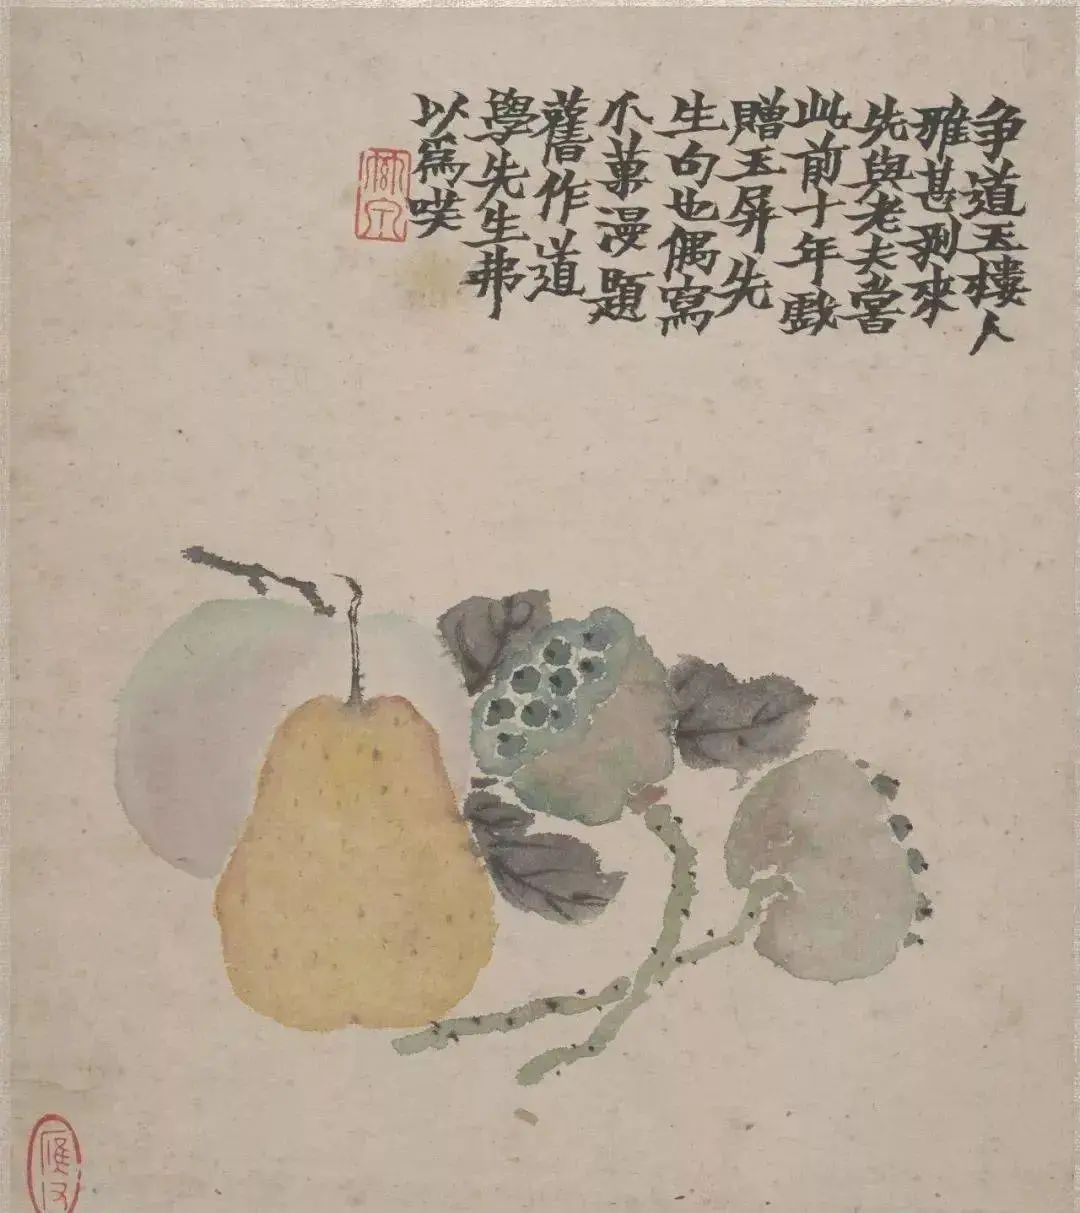 争道玉樓人
雅甚剝來
先與老夫嘗
此前十年戲
贈玉屏先
生句也偶寫
瓜菓漫題
舊作道
學先生弗
以爲